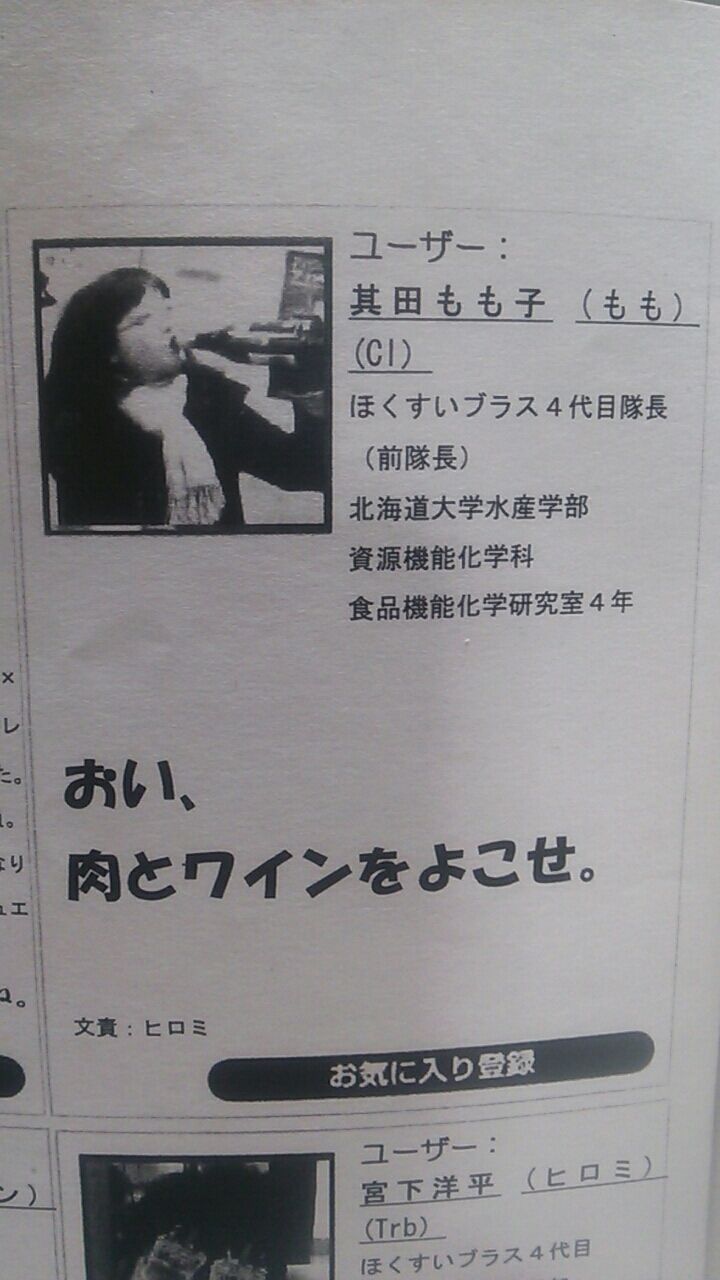 ユーザー：
其田もも子 （もも）
(Cl)
ほくすいブラス４代目隊長
（前隊長）
北海道大学水産学部
資源機能化学科
食品機能化学研究室４年
おい、
肉とワインをよこせ。
文責：ヒロミ
お気に入り登録
×
レ
た。
。
なり
ュエ
ね。
ン）
ユーザー：
宮下洋平 （ヒロミ）
(Trb)
ほくすいブラス４代目